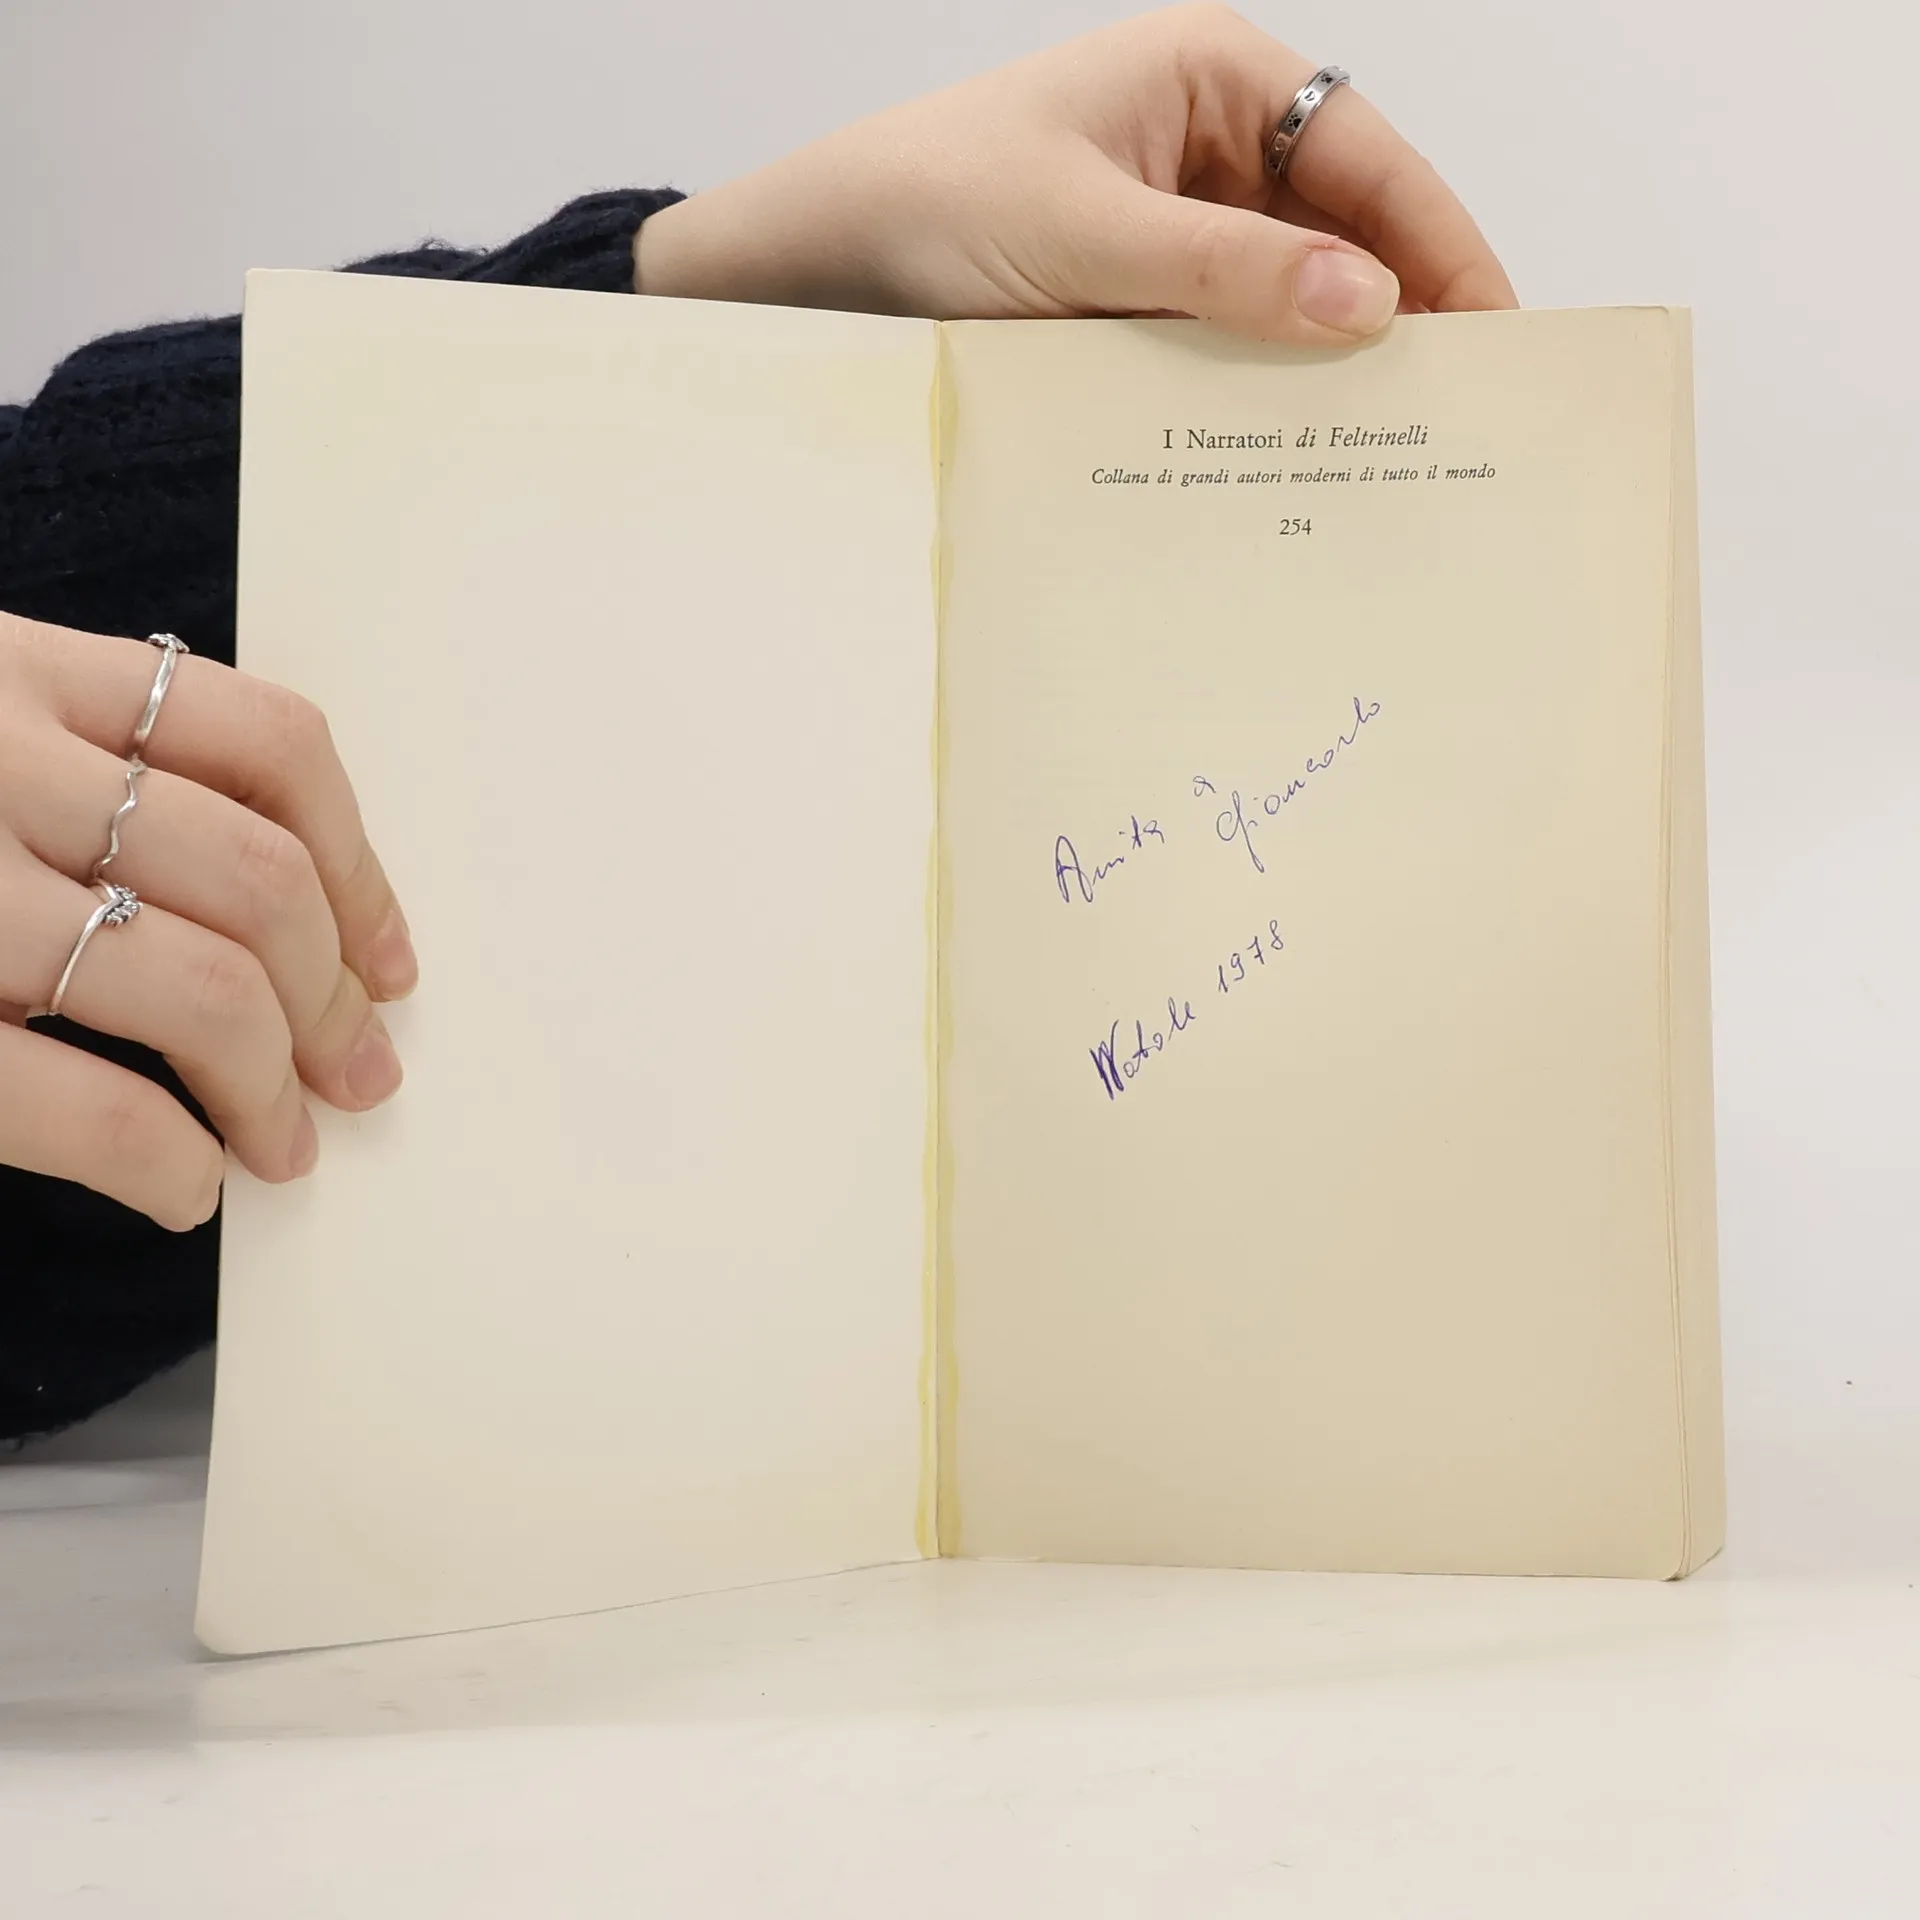 I Narratori di Feltrinelli
Collana di grandi autori moderni di tutto il mondo
254
Anita a Giancarlo
Natale 1978